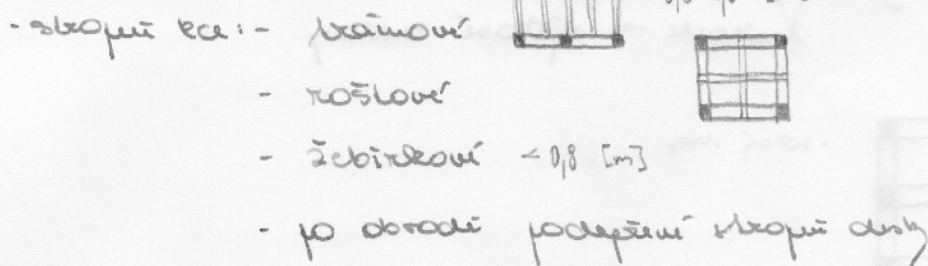 - stropní kce: - trámové
- roštové
- žebírkové < 0,8 [m]
- po obvodě podepřené stropní desky